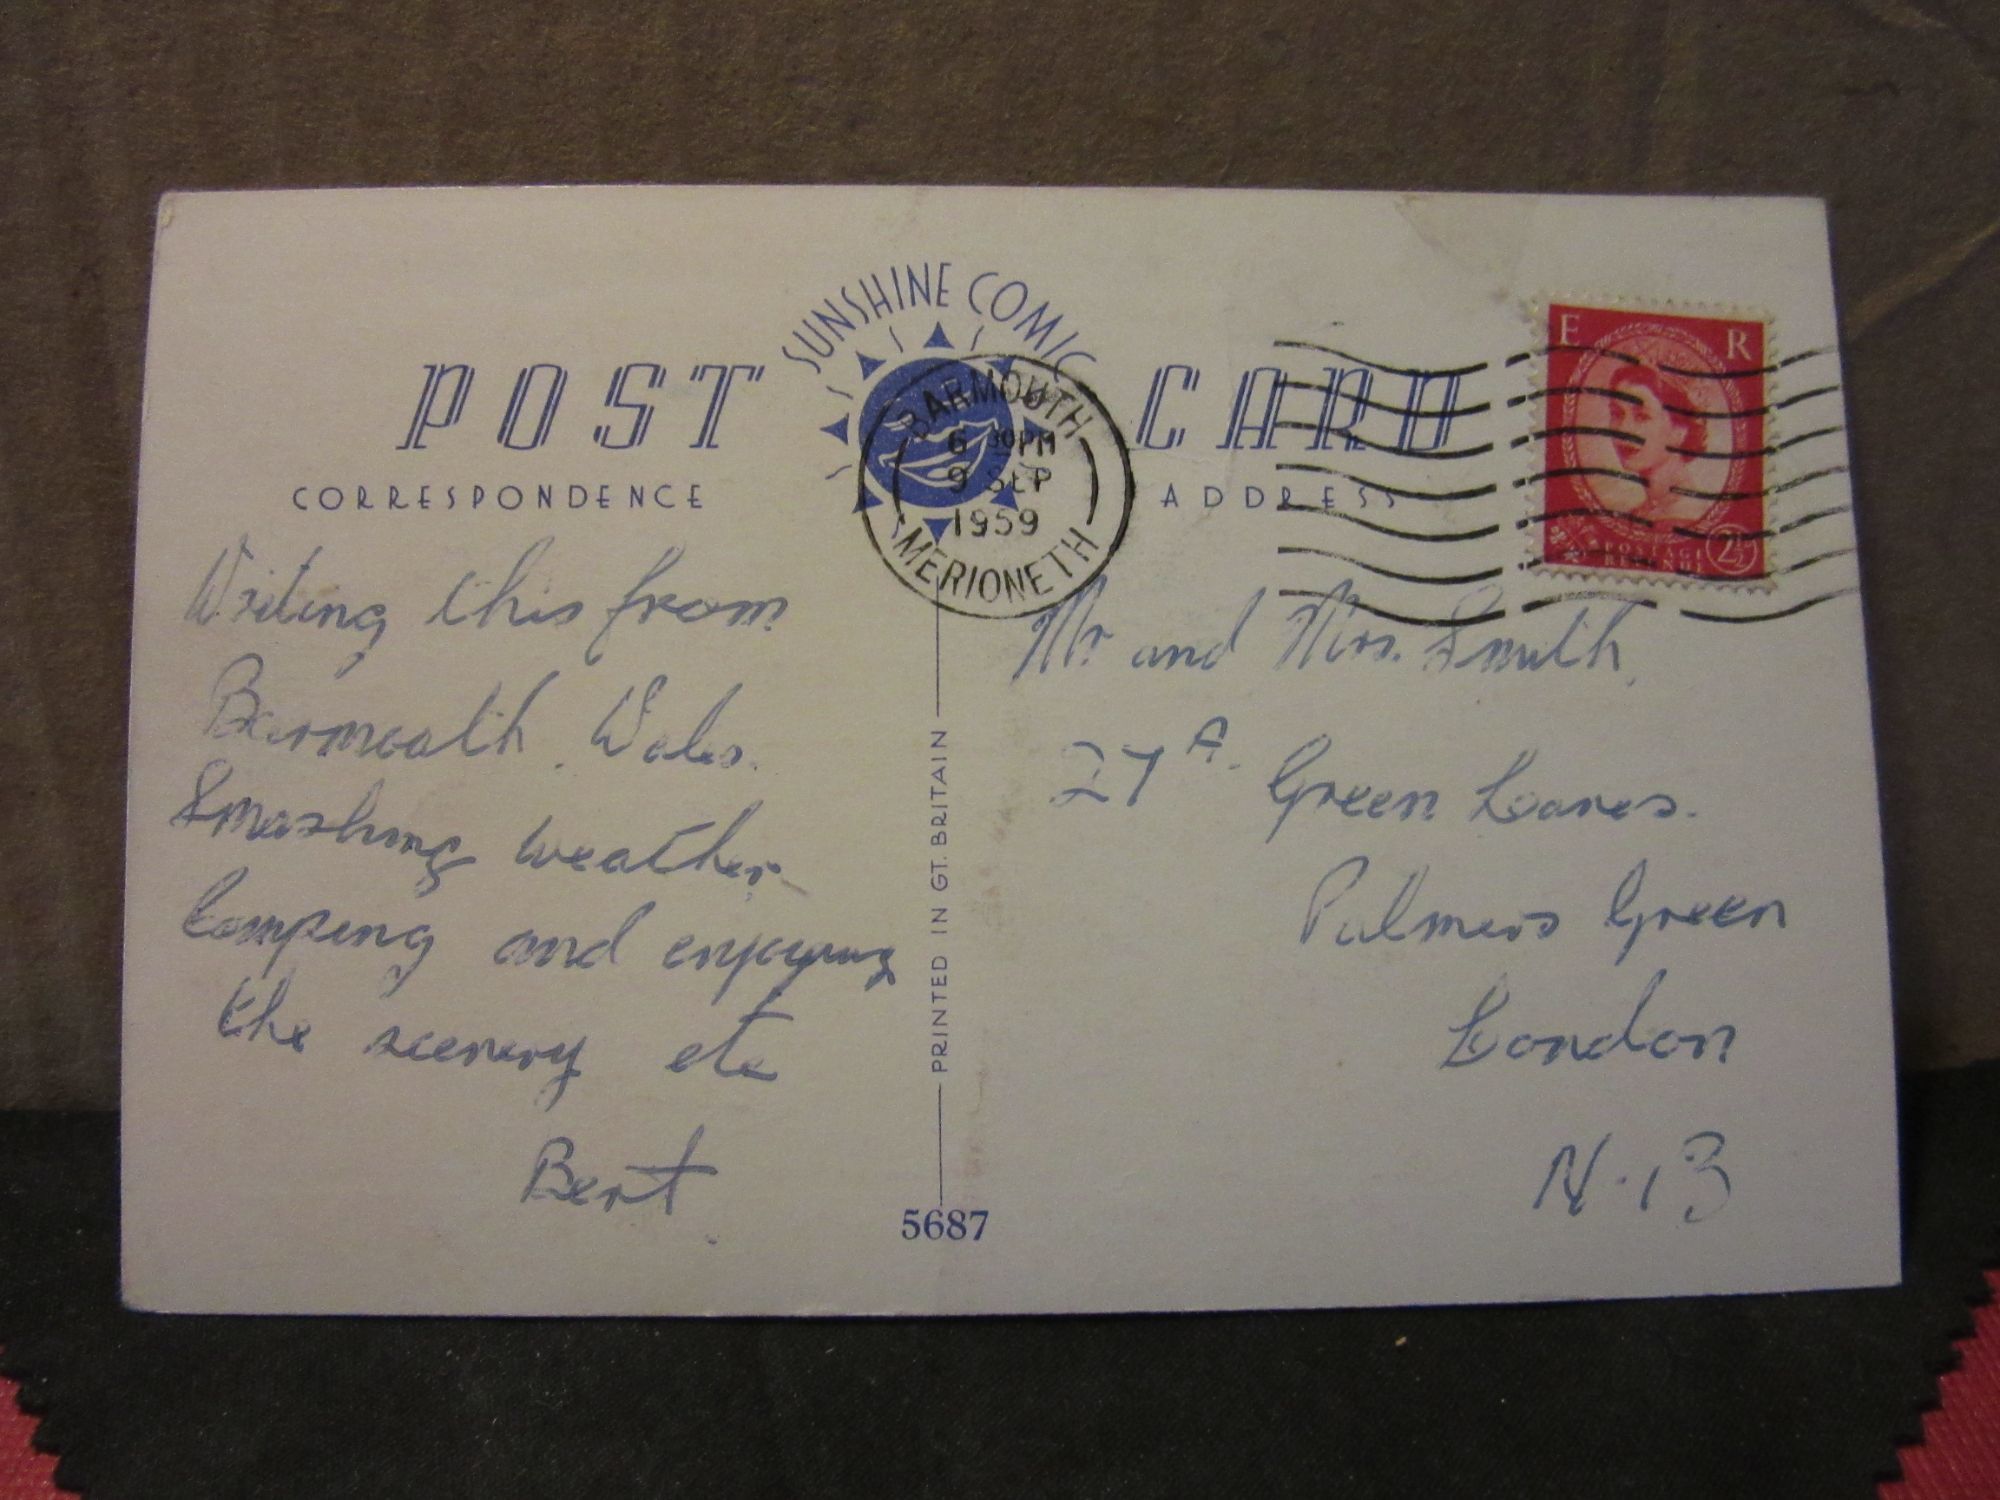 SUNSHINE COMIC
POST CARD
CORRESPONDENCE
ADDRESS
BARMOUTH
6 30 PM
9 SEP
1959
MERIONETH
E R
POSTAGE
REVENUE
2½D
Writing this from
Barmouth. Wales.
Smashing weather.
Camping and enjoying
the scenery etc
Bert
PRINTED IN GT. BRITAIN
5687
Mr and Mrs. Smith,
27A. Green Lanes.
Palmers Green
London
N.13